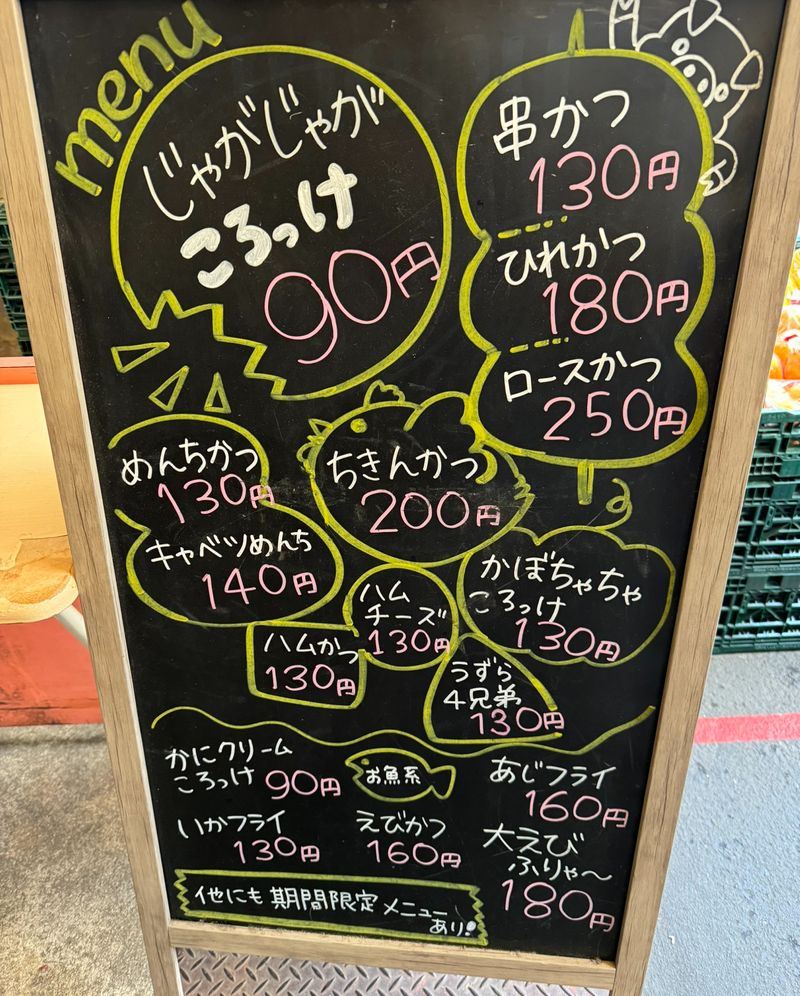 menu
じゃがじゃが
ころっけ
90円
串かつ
130円
ひれかつ
180円
ロースかつ
250円
めんちかつ
130円
キャベツめんち
140円
ちきんかつ
200円
ハム
チーズ
130円
かぼちゃちゃ
ころっけ
130円
ハムかつ
130円
うずら
4兄弟
130円
かにクリーム
ころっけ 90円
お魚系
あじフライ
160円
いかフライ
130円
えびかつ
160円
大えび
ふりゃ〜
180円
他にも期間限定メニュー
あり!